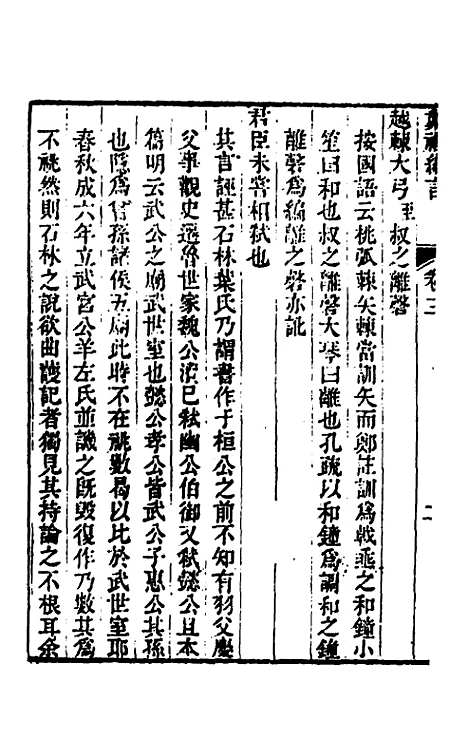 越棘大弓至叔之離磬
按國語云桃弧棘矢棘當訓矢而鄭註訓爲戟垂之和鐘小
笙曰和也叔之離磬大琴曰離也孔疏以和鐘爲調和之鐘
離磬爲編離之磬亦訛
君臣未嘗相弑也
其言誣甚石林葉氏乃謂書作于桓公之前不知有羽父慶
父事觀史遷魯世家魏公濆已弑幽公伯御又弑懿公且本
篇明云武公之廟武世室也懿公孝公皆武公子惠公其孫
也隱爲曾孫諸侯五廟此時不在祧數曷以比於武世室耶
春秋成六年立武宮公羊左氏並譏之旣毀復作乃數其爲
不祧然則石林之說欲曲護記者獨見其持論之不根耳余
卷三
二